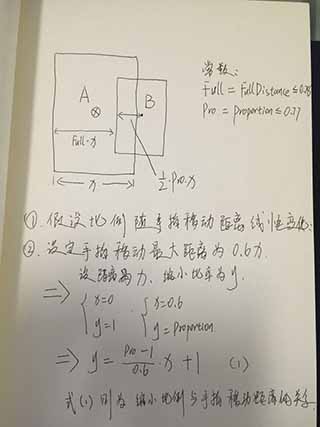 常数:
Full = FullDistance ≤ 0.78
Pro = proportion ≤ 0.77
A
B
Full·x
x
1/2·Pro·x
①. 假设比例随手指移动距离线性变化:
②. 设定手指移动最大距离为0.6力.
设距离为力, 缩小比率为y.
⇒ { x=0 { x=0.6
y=1 y=Proportion
⇒ y = (Pro-1)/0.6 · x + 1 (1)
式(1)则为缩小比例与手指移动距离的关系